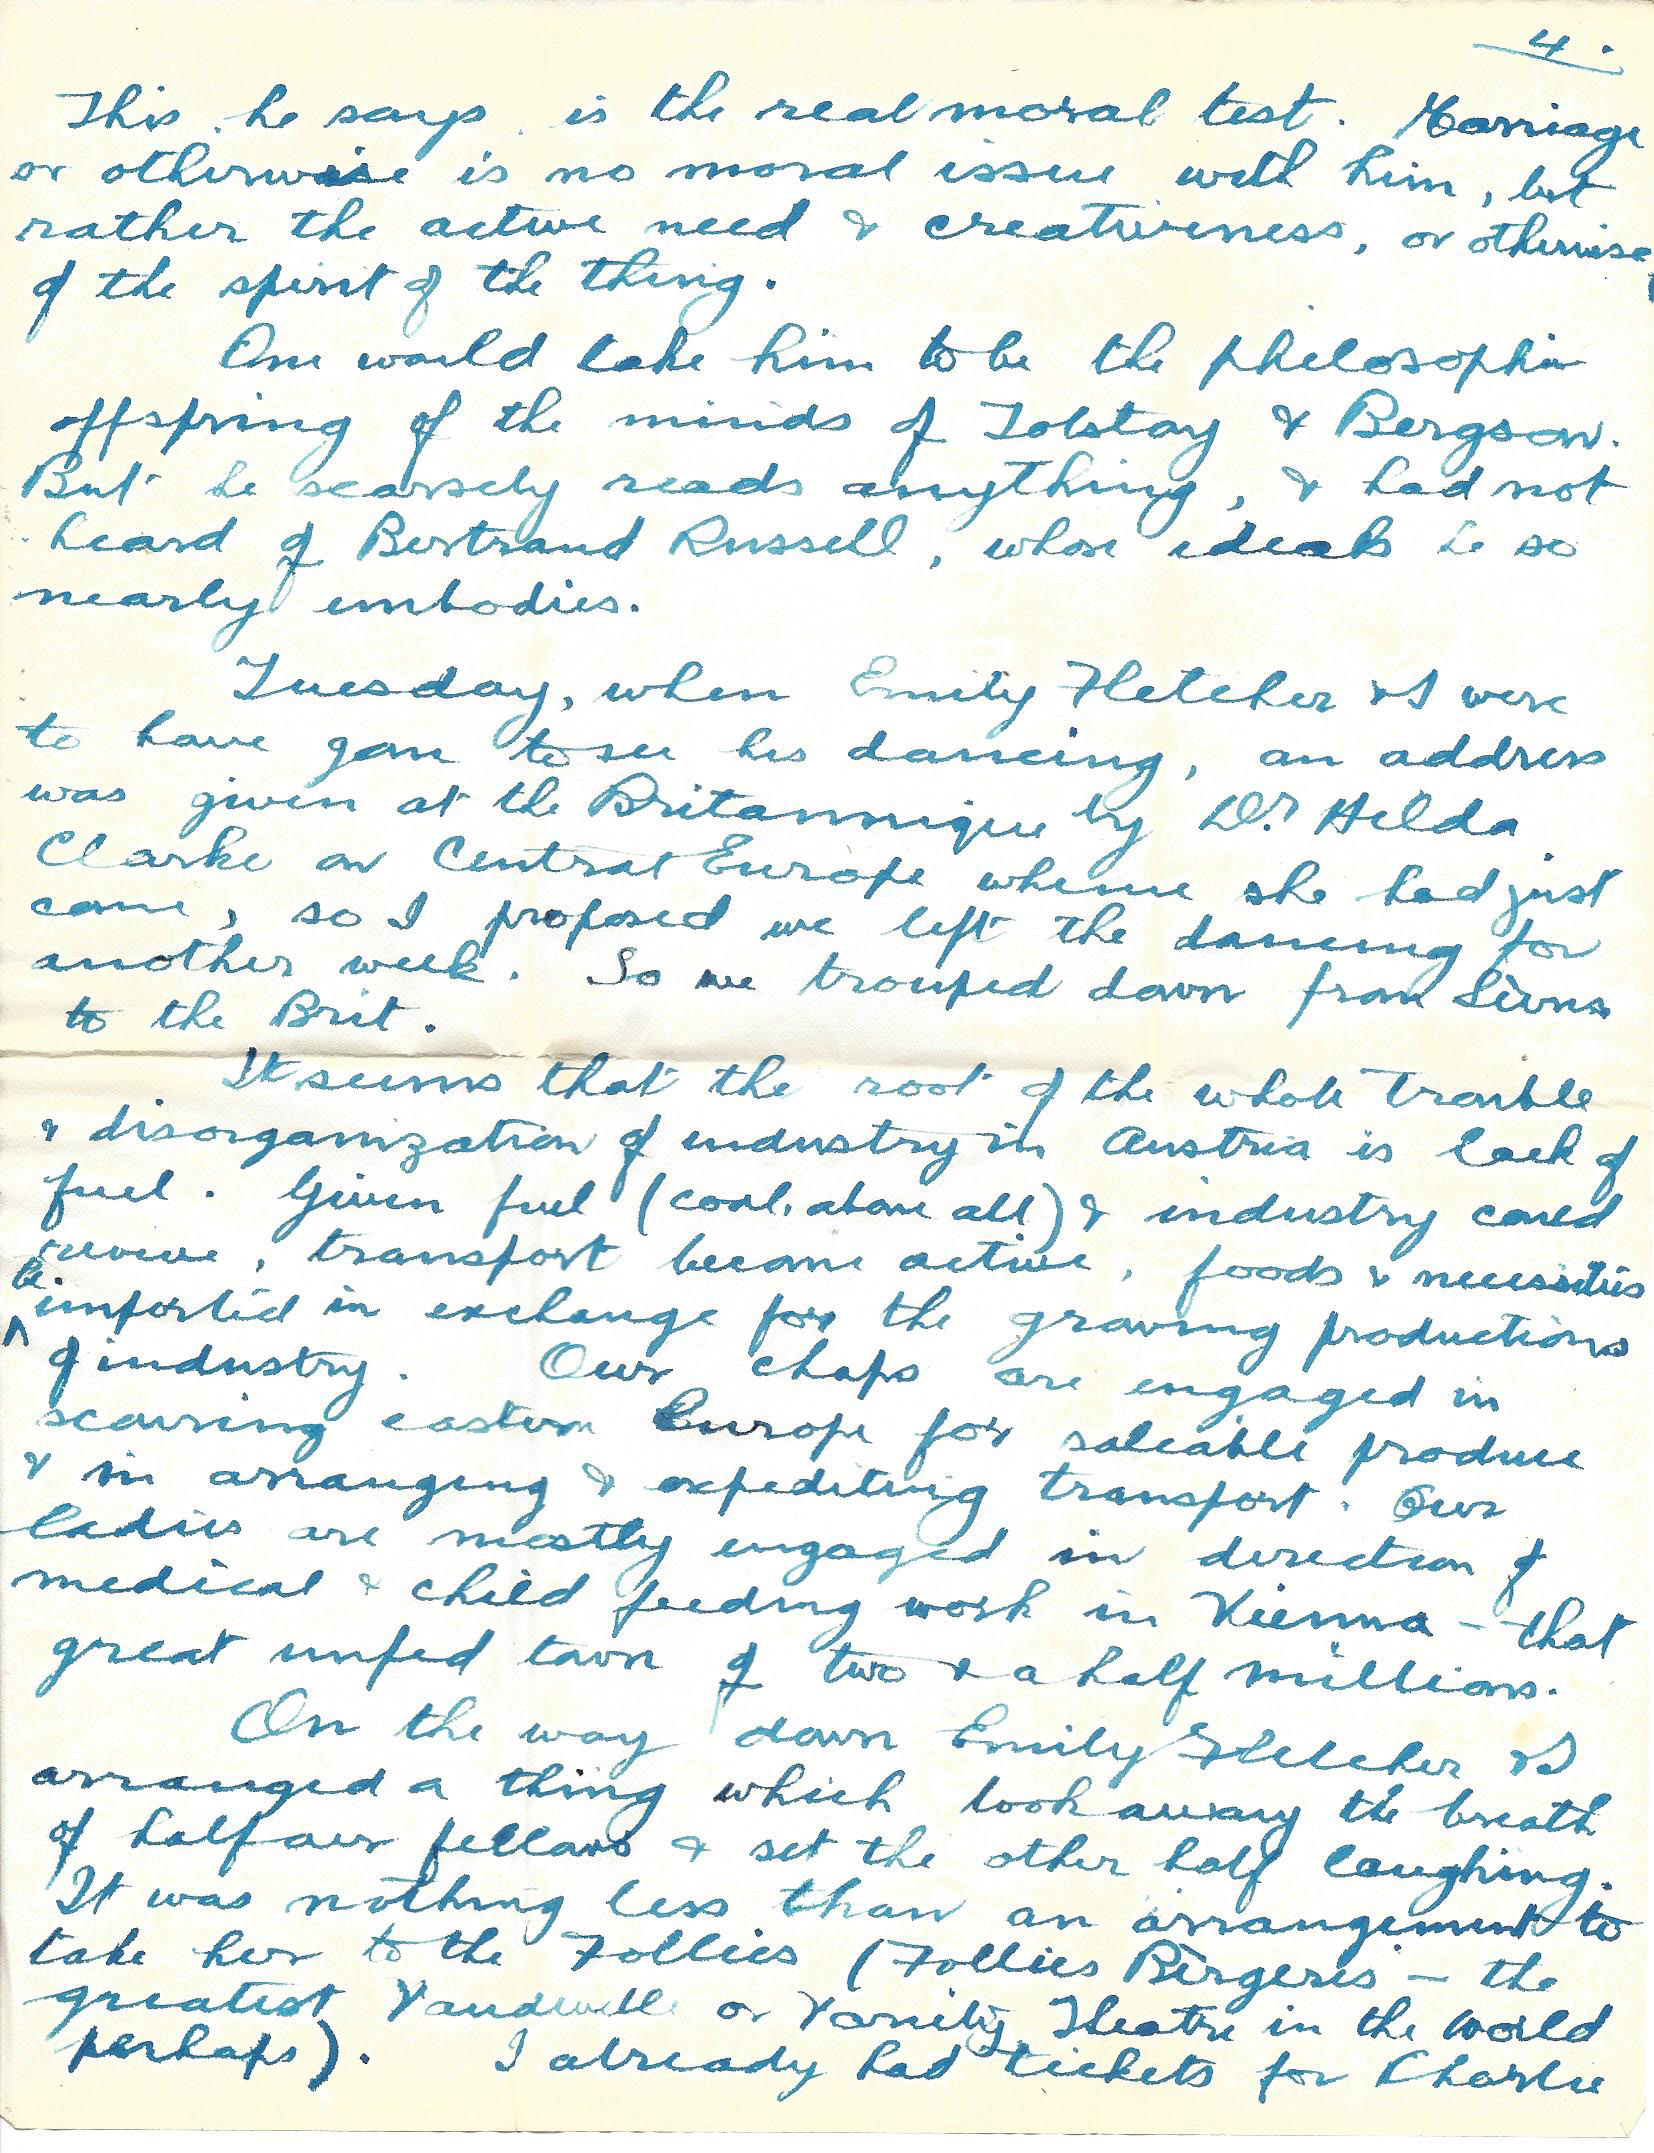 4.
This, he says, is the real moral test. Marriage
or otherwise is no moral issue with him, but
rather the active need & creativeness, or otherwise,
of the spirit of the thing.
One would take him to be the philosophic
offspring of the minds of Tolstoy & Bergson.
But he scarsely reads anything, & had not
heard of Bertrand Russell, whose ideals he so
nearly embodies.
Tuesday, when Emily Fletcher & I were
to have gone to see his dancing, an address
was given at the Britannique by Dr. Hilda
Clarke on Central Europe whence she had just
come, so I proposed we left the dancing for
another week. So we trouped down from
to the Brit.
It seems that the root of the whole trouble
& disorganization of industry in Austria is lack of
fuel. Given fuel (coal, above all) & industry could
revive, transport become active, foods & necessities
be imported in exchange for the growing productions
of industry. Our chaps are engaged in
scouring eastern Europe for saleable produce
& in arranging & expediting transport. Our
ladies are mostly engaged in direction of
medical & child feeding work in Vienna - that
great unfed town of two & a half millions.
On the way down Emily Fletcher & I
arranged a thing which took away the breath
of half our fellows & set the other half laughing.
It was nothing less than an arrangement to
take her to the Follies (Follies Bèrgeres - the
greatest Vaudeville or Vanity Theatre in the world
perhaps). I already had tickets for Charlie